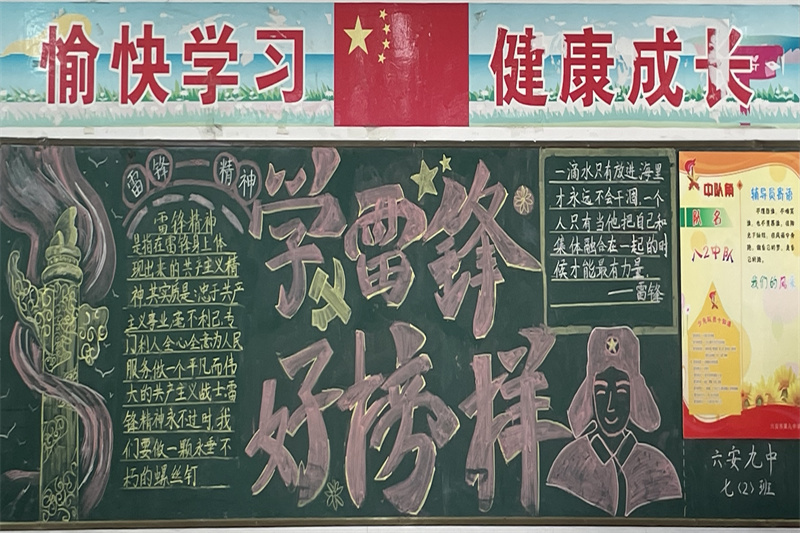 愉快学习
健康成长
雷锋精神
雷锋精神
是指在雷锋身上体
现出来的共产主义精
神其实质是:忠于共产
主义事业,毫不利己,专
门利人,全心全意为人民
服务做一个平凡而伟
大的共产主义战士,雷
锋精神永不过时,我
们要做一颗永垂不
朽的螺丝钉
学雷鋒
好榜样
一滴水只有放进海里
才永远不会干涸,一个
人只有当他把自己和
集体融合在一起的时
候才能最有力量.
——雷锋
中队角
队名
八2中队
辅导员寄语
我们的风采
六安九中
七(2)班